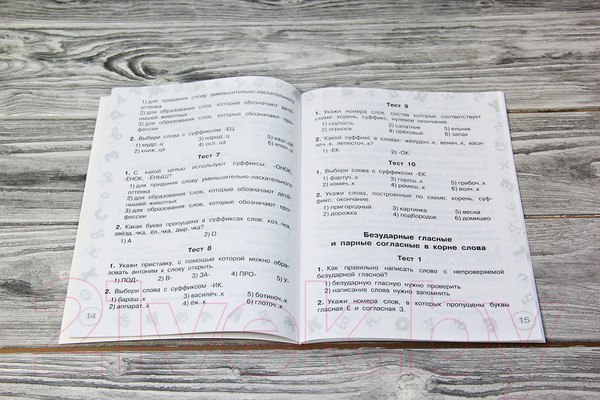 1) для придания слову уменьшительно-ласкательного
оттенка
2) для образования слов, которые обозначают дете-
нышей животных
3) для образования слов, которые обозначают про-
фессии
2. Выбери слова с суффиксом -ЕЦ.
1) мудр..ц
3) народ..ц
2) книж..ца
4) осл..ца
Тест 7
1. С какой целью используют суффиксы: -ОНОК,
-ЁНОК, -ЁНЫШ?
1) для придания слову уменьшительно-ласкательного
оттенка
2) для образования слов, которые обозначают детё-
нышей животных
3) для образования слов, которые обозначают про-
фессии
2. Какая буква пропущена в суффиксах слов: коз..чка,
звёзд..чка, ёл..чка, дыр..чка?
1) А
2) О
Тест 8
1. Укажи приставку, с помощью которой можно обра-
зовать антоним к слову открыть.
1) ПОД-
2) В-
3) ЗА-
4) ПРО-
5) У-
2. Выбери слова с суффиксом -ИК.
1) бараш..к
3) василёч..к
5) ботиноч..к
2) аппарат..к
4) ёж..к
6) глоточ..к
14
Тест 9
1. Укажи номера слов, состав которых соответствует
схеме: корень, суффикс, нулевое окончание.
1) скупость
3) салатник
5) ельник
2) огрызок
4) ореховый
6) запах
2. Какой суффикс в словах: желудь.., венич..к, васи-
1) -ЕК
2) -ОК
Тест 10
1. Выбери слова с суффиксом -ЕК.
1) фартуч..к
3) горош..к
5) грибоч..к
2) хомяч..к
4) ремеш..к
6) волч..к
2. Укажи слова, построенные по схеме: корень, суф-
фикс, окончание.
1) пригородный
3) картинка
5) весна
2) дорожка
4) подбородок
6) домишко
Безударные гласные
и парные согласные в корне слова
Тест 1
1. Как правильно написать слово с непроверяемой
безударной гласной?
1) безударную гласную нужно проверить
2) написание слова нужно запомнить
2. Укажи номера слов, в которых пропущены буквы
гласная Е и согласная З.
15